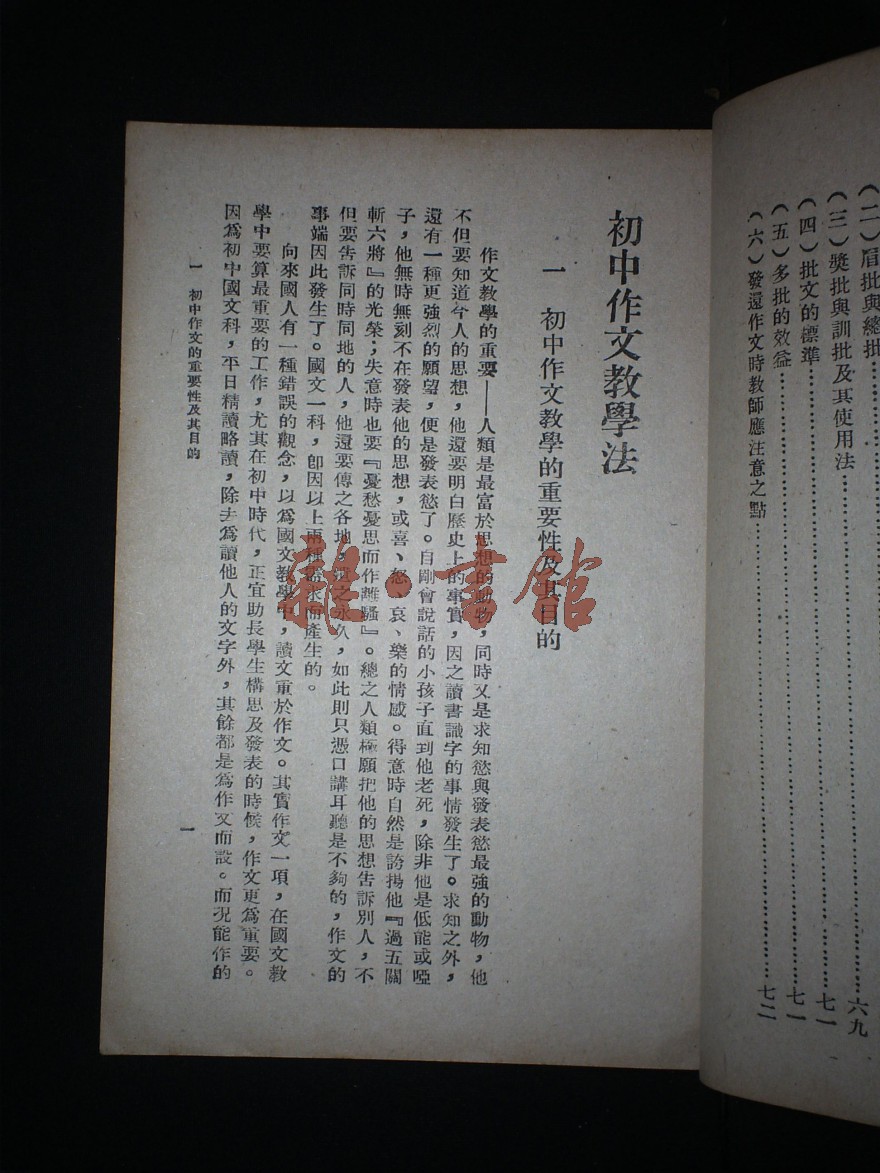 (二)眉批與總批……六九
(三)獎批與訓批及其使用法……七一
(四)批文的標準……七一
(五)多批的效益……七二
(六)發還作文時教師應注意之點……
初中作文教學法
一 初中作文教學的重要性及其目的
作文教學的重要——人類是最富於思想的動物,同時又是求知慾與發表慾最強的動物,他
不但要知道今人的思想,他還要明白歷史上的事實,因之讀書識字的事情發生了。求知之外,
還有一種更強烈的願望,便是發表慾了。自剛會說話的小孩子直到他老死,除非他是低能或啞
子,他無時無刻不在發表他的思想,或喜、怒、哀、樂的情感。得意時自然是誇揚他『過五關
斬六將』的光榮;失意時也要『憂愁憂思而作離騷』。總之人類極願把他的思想告訴別人,不
但要告訴同時同地的人,他還要傳之各地,之永久,如此則只憑口講耳聽是不夠的,作文的
事端因此發生了。國文一科,卽因以上兩種需求而產生的。
向來國人有一種錯誤的觀念,以爲國文教學中,讀文重於作文。其實作文一項,在國文教
學中要算最重要的工作,尤其在初中時代,正宜助長學生構思及發表的時候,作文更爲重要。
因爲初中國文科,平日精讀略讀,除去爲讀他人的文字外,其餘都是爲作文而設。而況能作的
一 初中作文的重要性及其目的
一
龍·書館